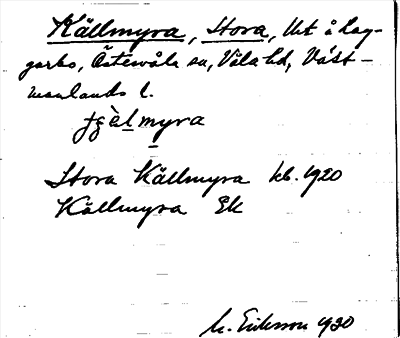 Källmyra, Stora, Utt å Lag-
garbo, Östervåla sn, Våla hd, Väst-
manlands l.
ɟgèlmyra
Stora Källmyra kb. 1920
Källmyra Ek
M. Eriksson 1930